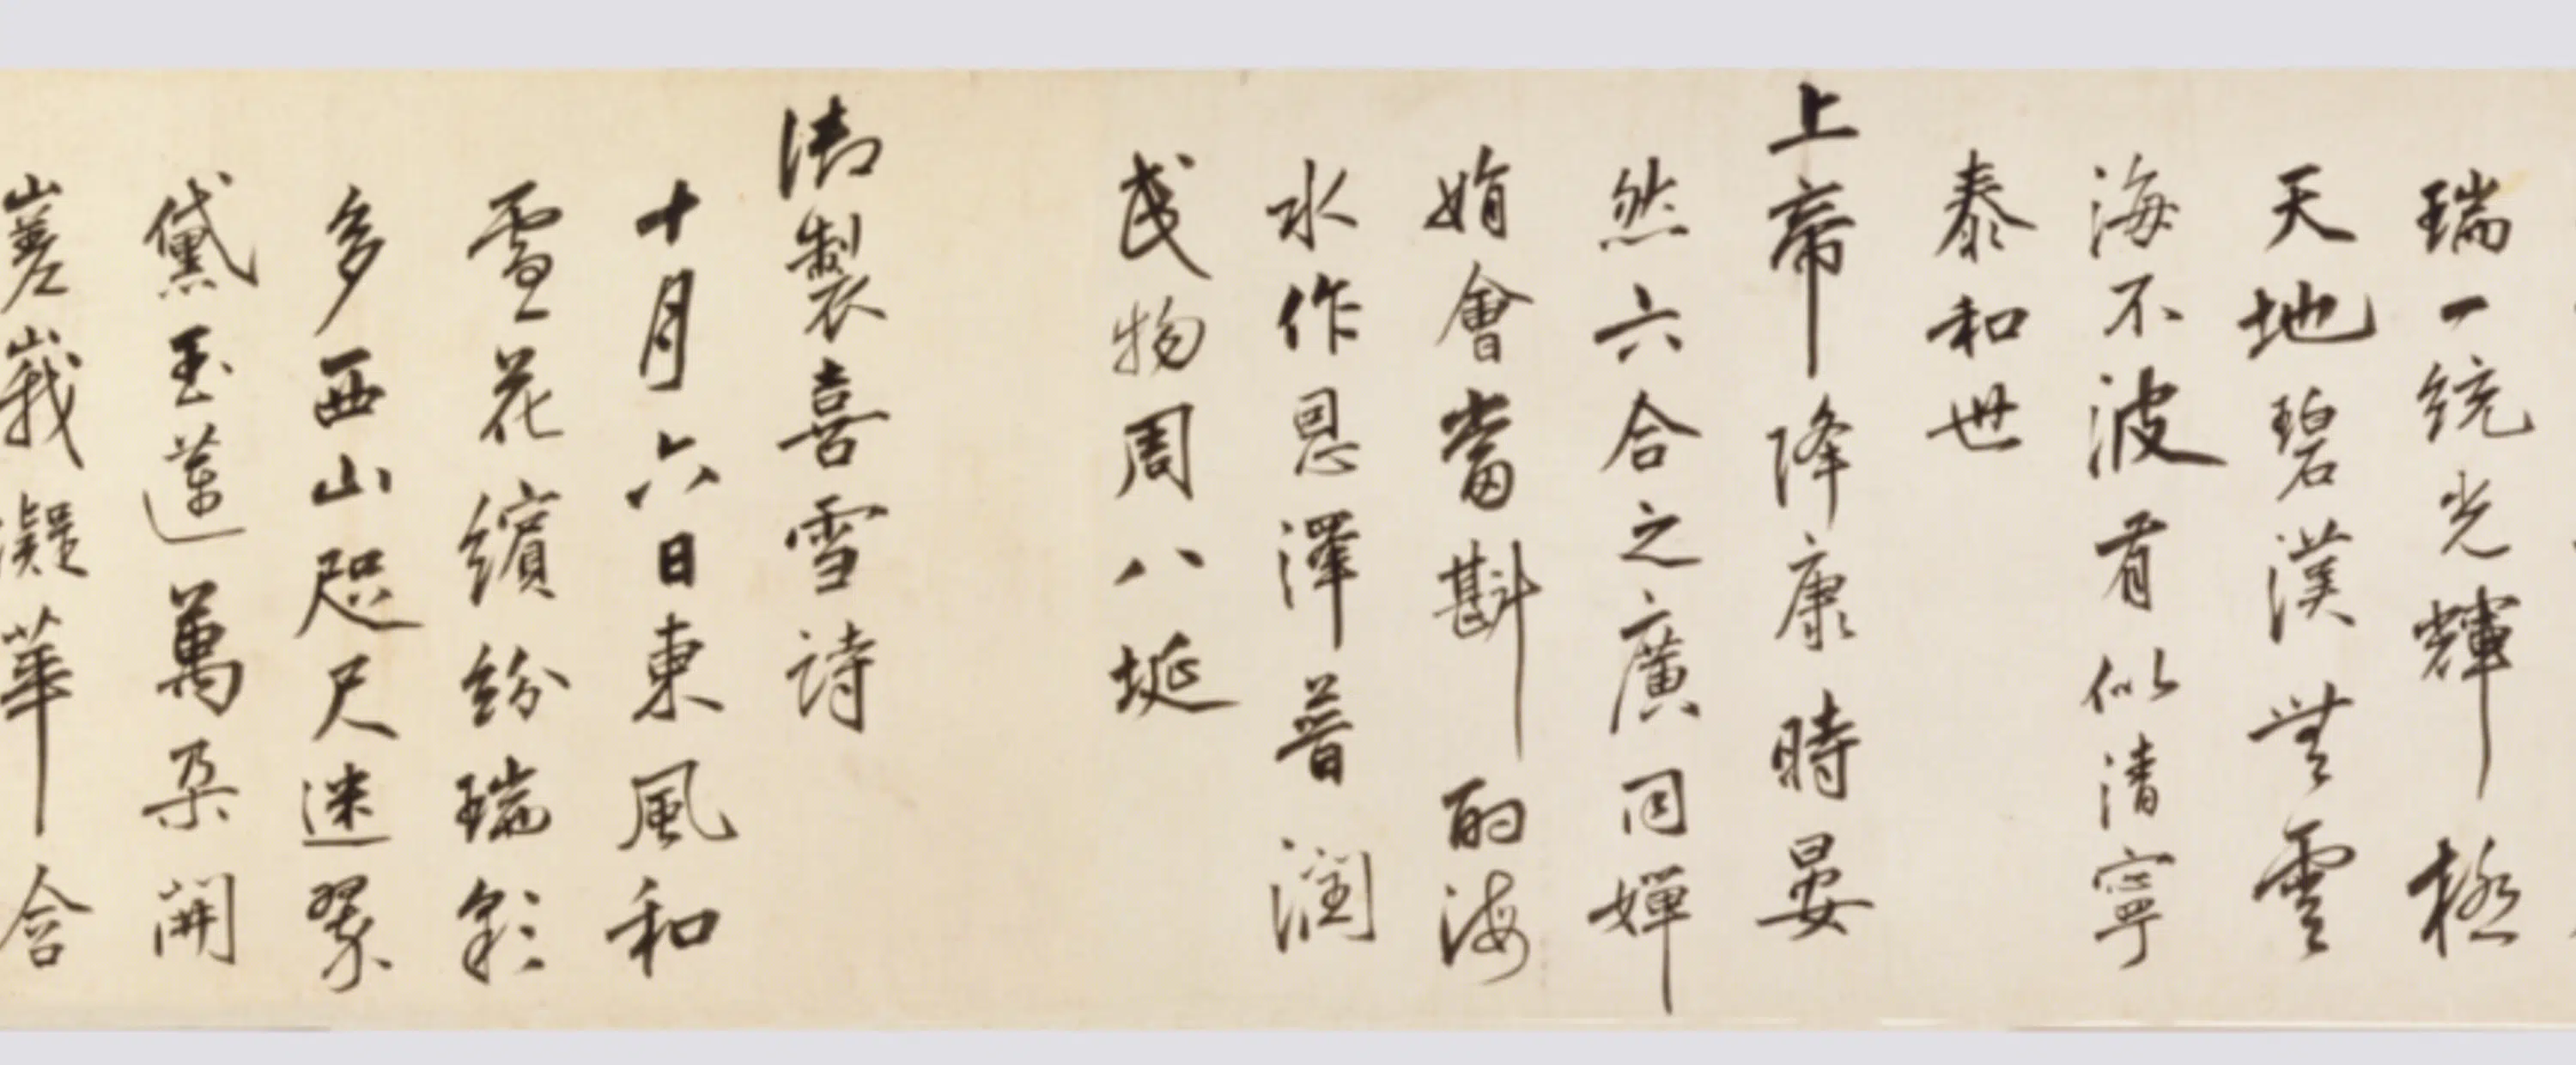 瑞一統光輝極
天地碧漢無雲
海不波有似清寧
泰和世
上帝降康時晏
然六合之廣同嬋
娟會當斟酌海
水作恩澤普潤
民物周八埏
御製喜雪詩
十月六日東風和
雪花繽紛瑞彩
多西山咫尺迷翠
黛玉蓮萬朵開
嵳峩凝華含